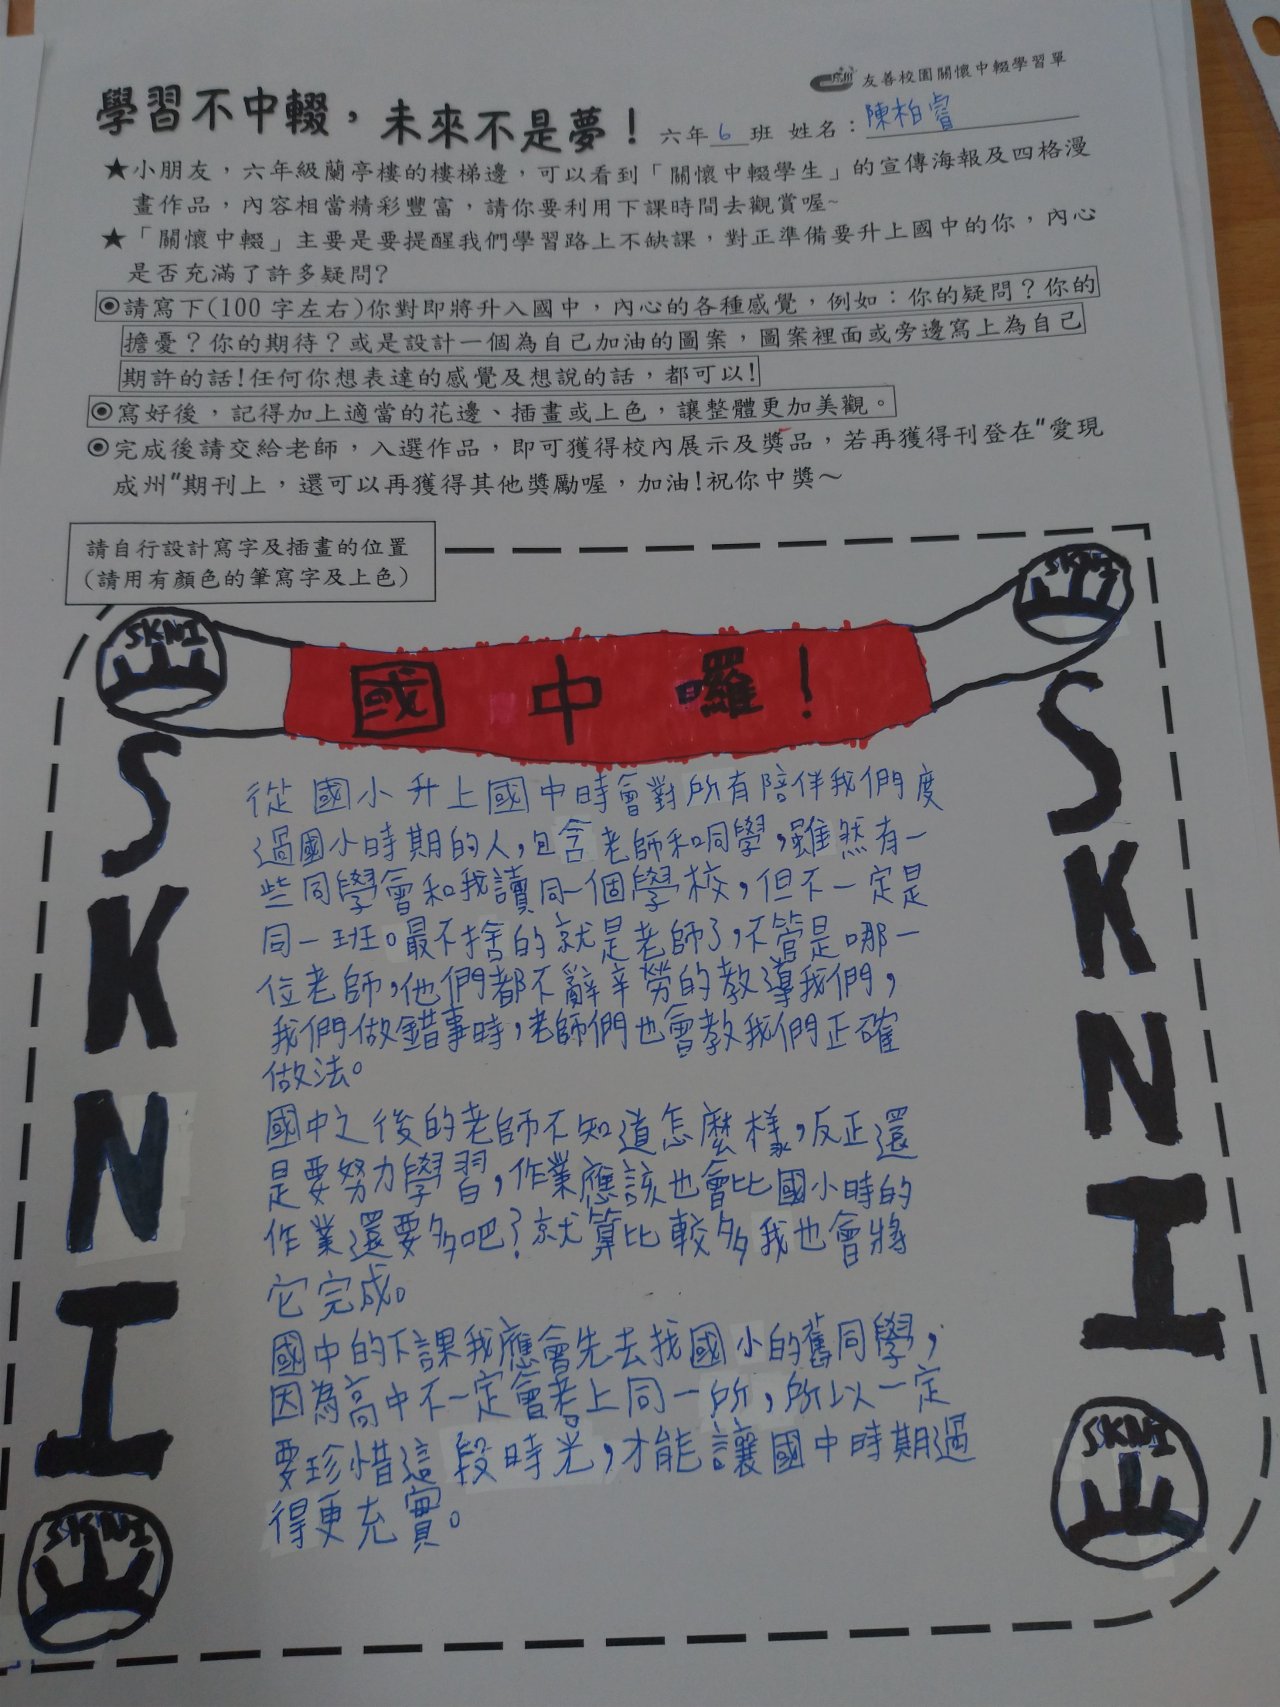 友善校園關懷中輟學習單
學習不中輟，未來不是夢！ 六年6班 姓名：陳柏睿
★小朋友，六年級蘭亭樓的樓梯邊，可以看到「關懷中輟學生」的宣傳海報及四格漫
畫作品，內容相當精彩豐富，請你要利用下課時間去觀賞喔~
★「關懷中輟」主要是要提醒我們學習路上不缺課，對正準備要升上國中的你，內心
是否充滿了許多疑問?
◉請寫下(100字左右)你對即將升入國中，內心的各種感覺，例如：你的疑問？你的
擔憂？你的期待？或是設計一個為自己加油的圖案，圖案裡面或旁邊寫上為自己
期許的話!任何你想表達的感覺及想說的話，都可以!
◉寫好後，記得加上適當的花邊、插畫或上色，讓整體更加美觀。
◉完成後請交給老師，入選作品，即可獲得校內展示及獎品，若再獲得刊登在"愛現
成州"期刊上，還可以再獲得其他獎勵喔，加油!祝你中獎～
請自行設計寫字及插畫的位置
(請用有顏色的筆寫字及上色)
SKNI
SKNI
國中囉！
SKNI
SKNI
從國小升上國中時會對所有陪伴我們度
過國小時期的人，包含老師和同學，雖然有一
些同學會和我讀同一個學校，但不一定是
同一班。最不捨的就是老師了，不管是哪一
位老師，他們都不辭辛勞的教導我們，
我們做錯事時，老師們也會教我們正確
做法。
國中之後的老師不知道怎麼樣，反正還
是要努力學習，作業應該也會比國小時的
作業還要多吧？就算比較多我也會將
它完成。
國中的下課我應會先去找國小的舊同學，
因為高中不一定會考上同一所，所以一定
要珍惜這段時光，才能讓國中時期過
得更充實。
SKNI
SKNI